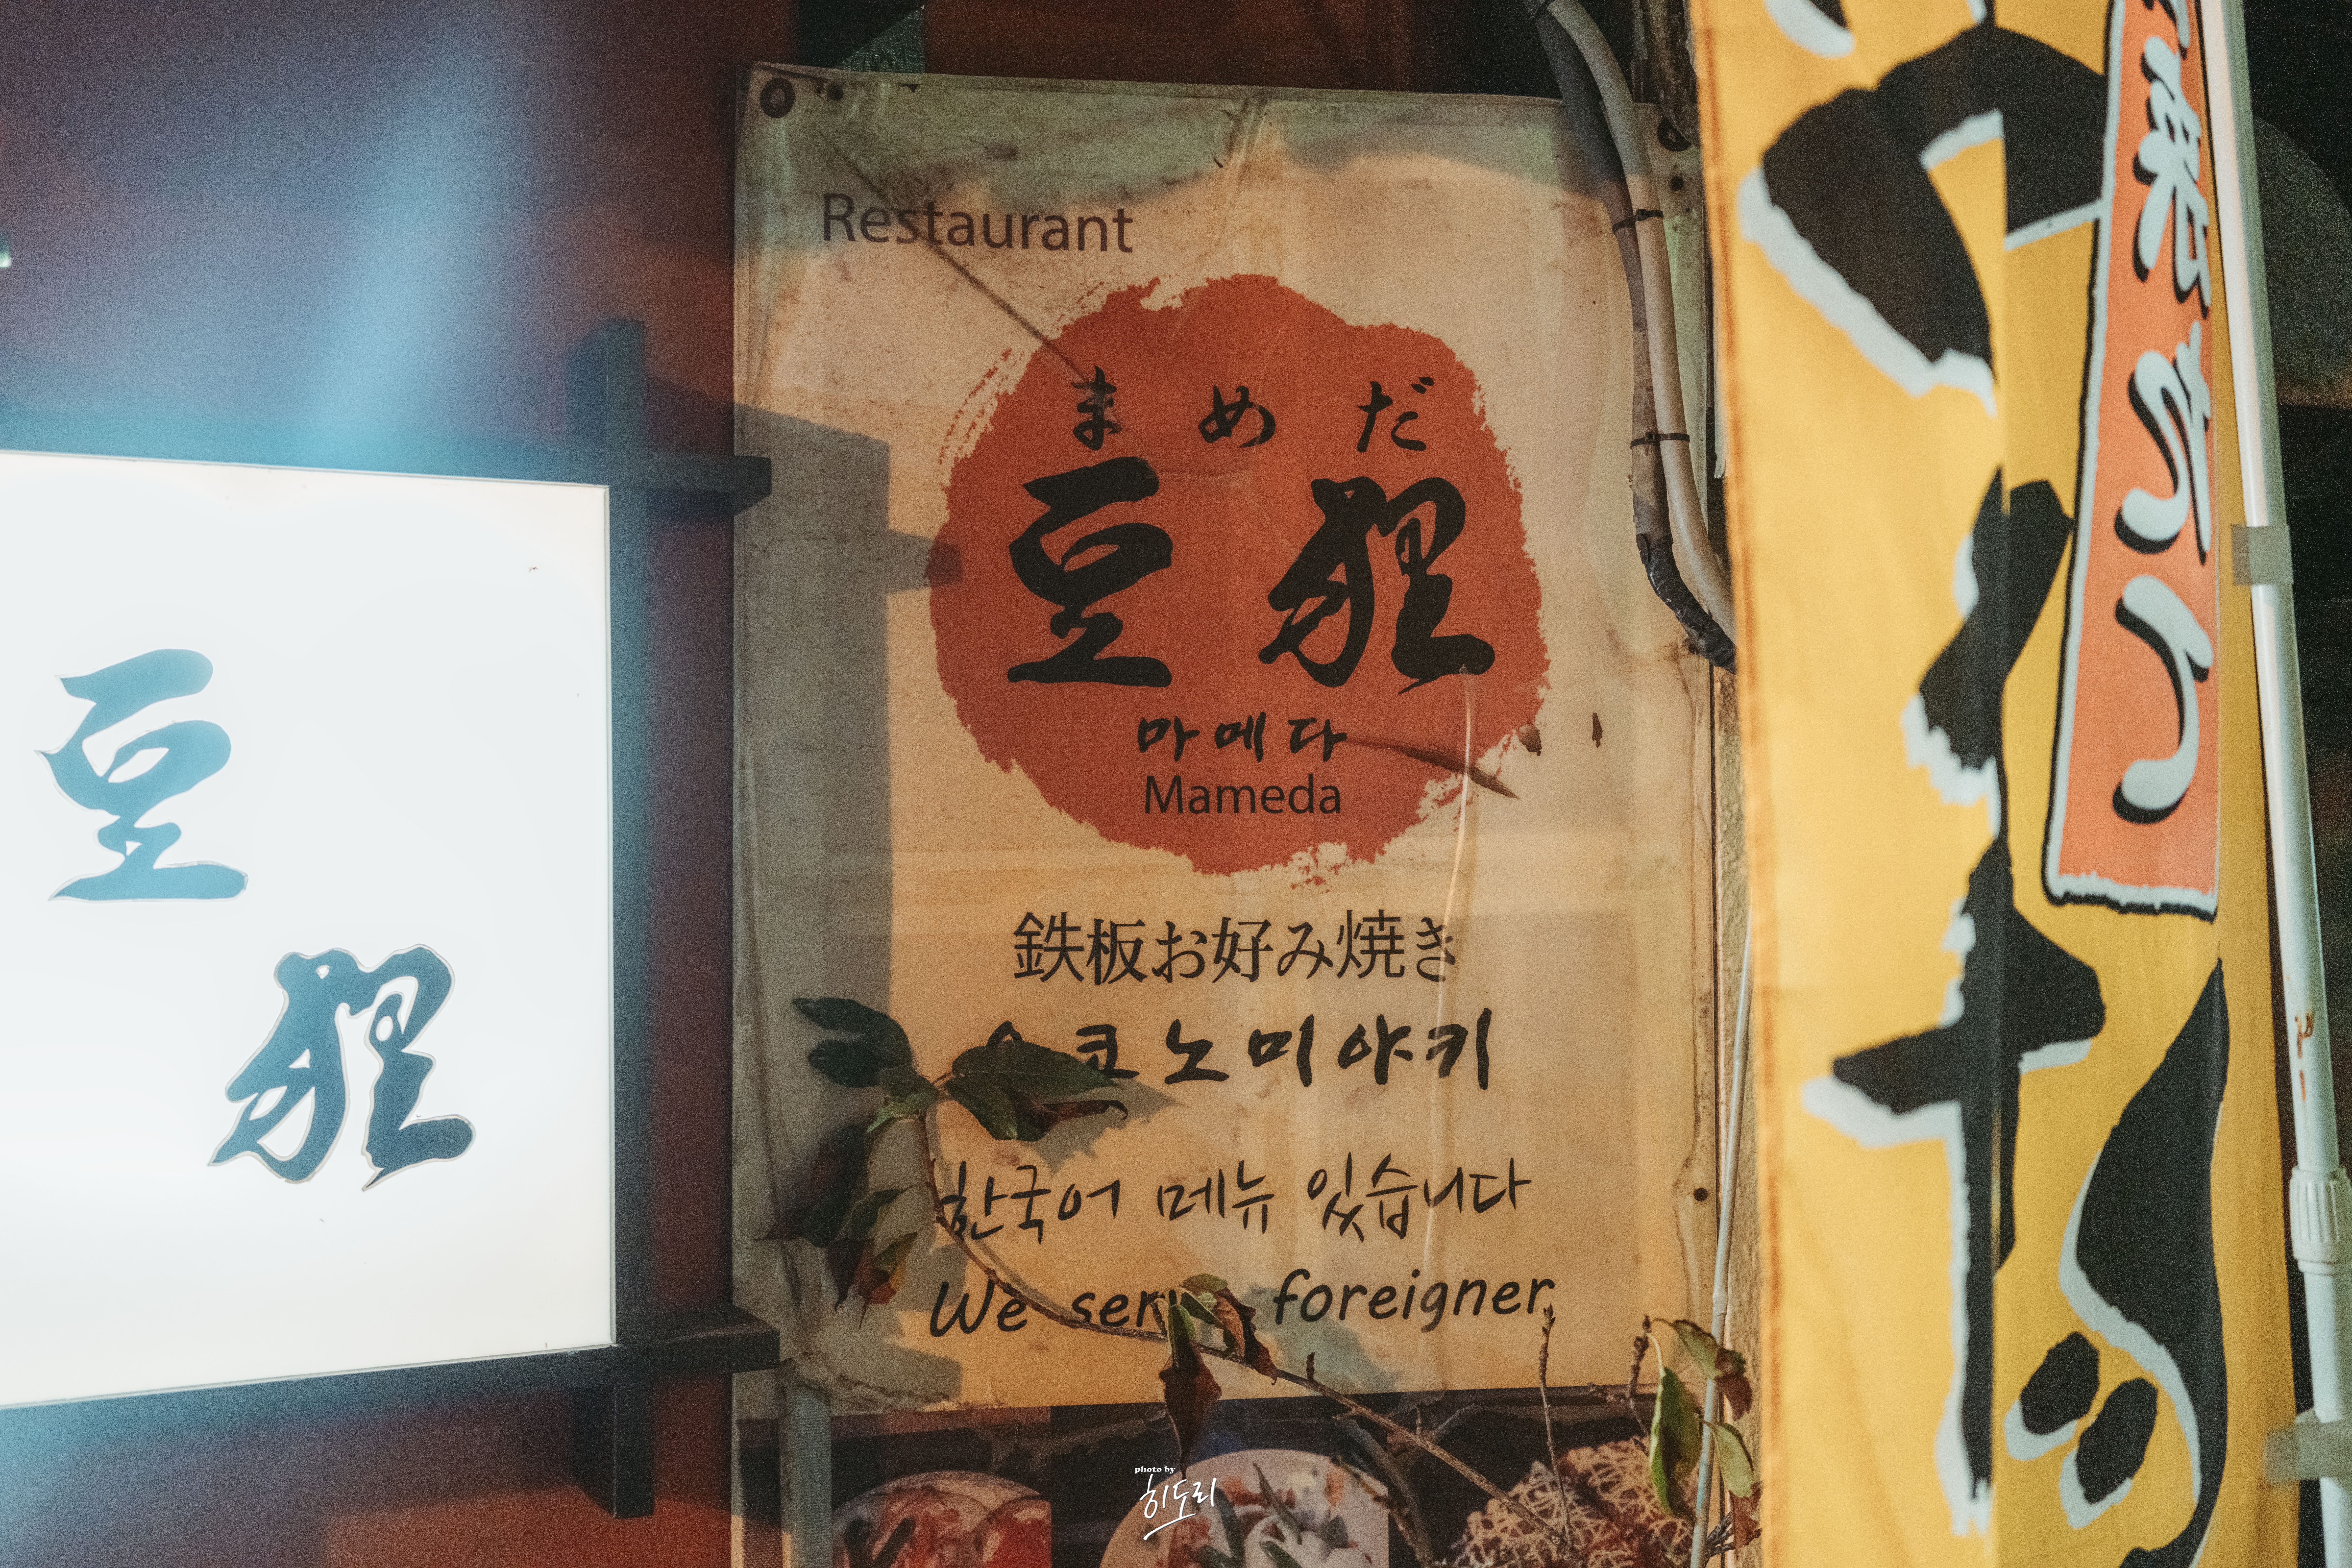 豆
狸
Restaurant
まめだ
豆狸
마메다
Mameda
鉄板お好み焼き
코노미야키
한국어 메뉴 있습니다
We foreigner
photo by
히도리